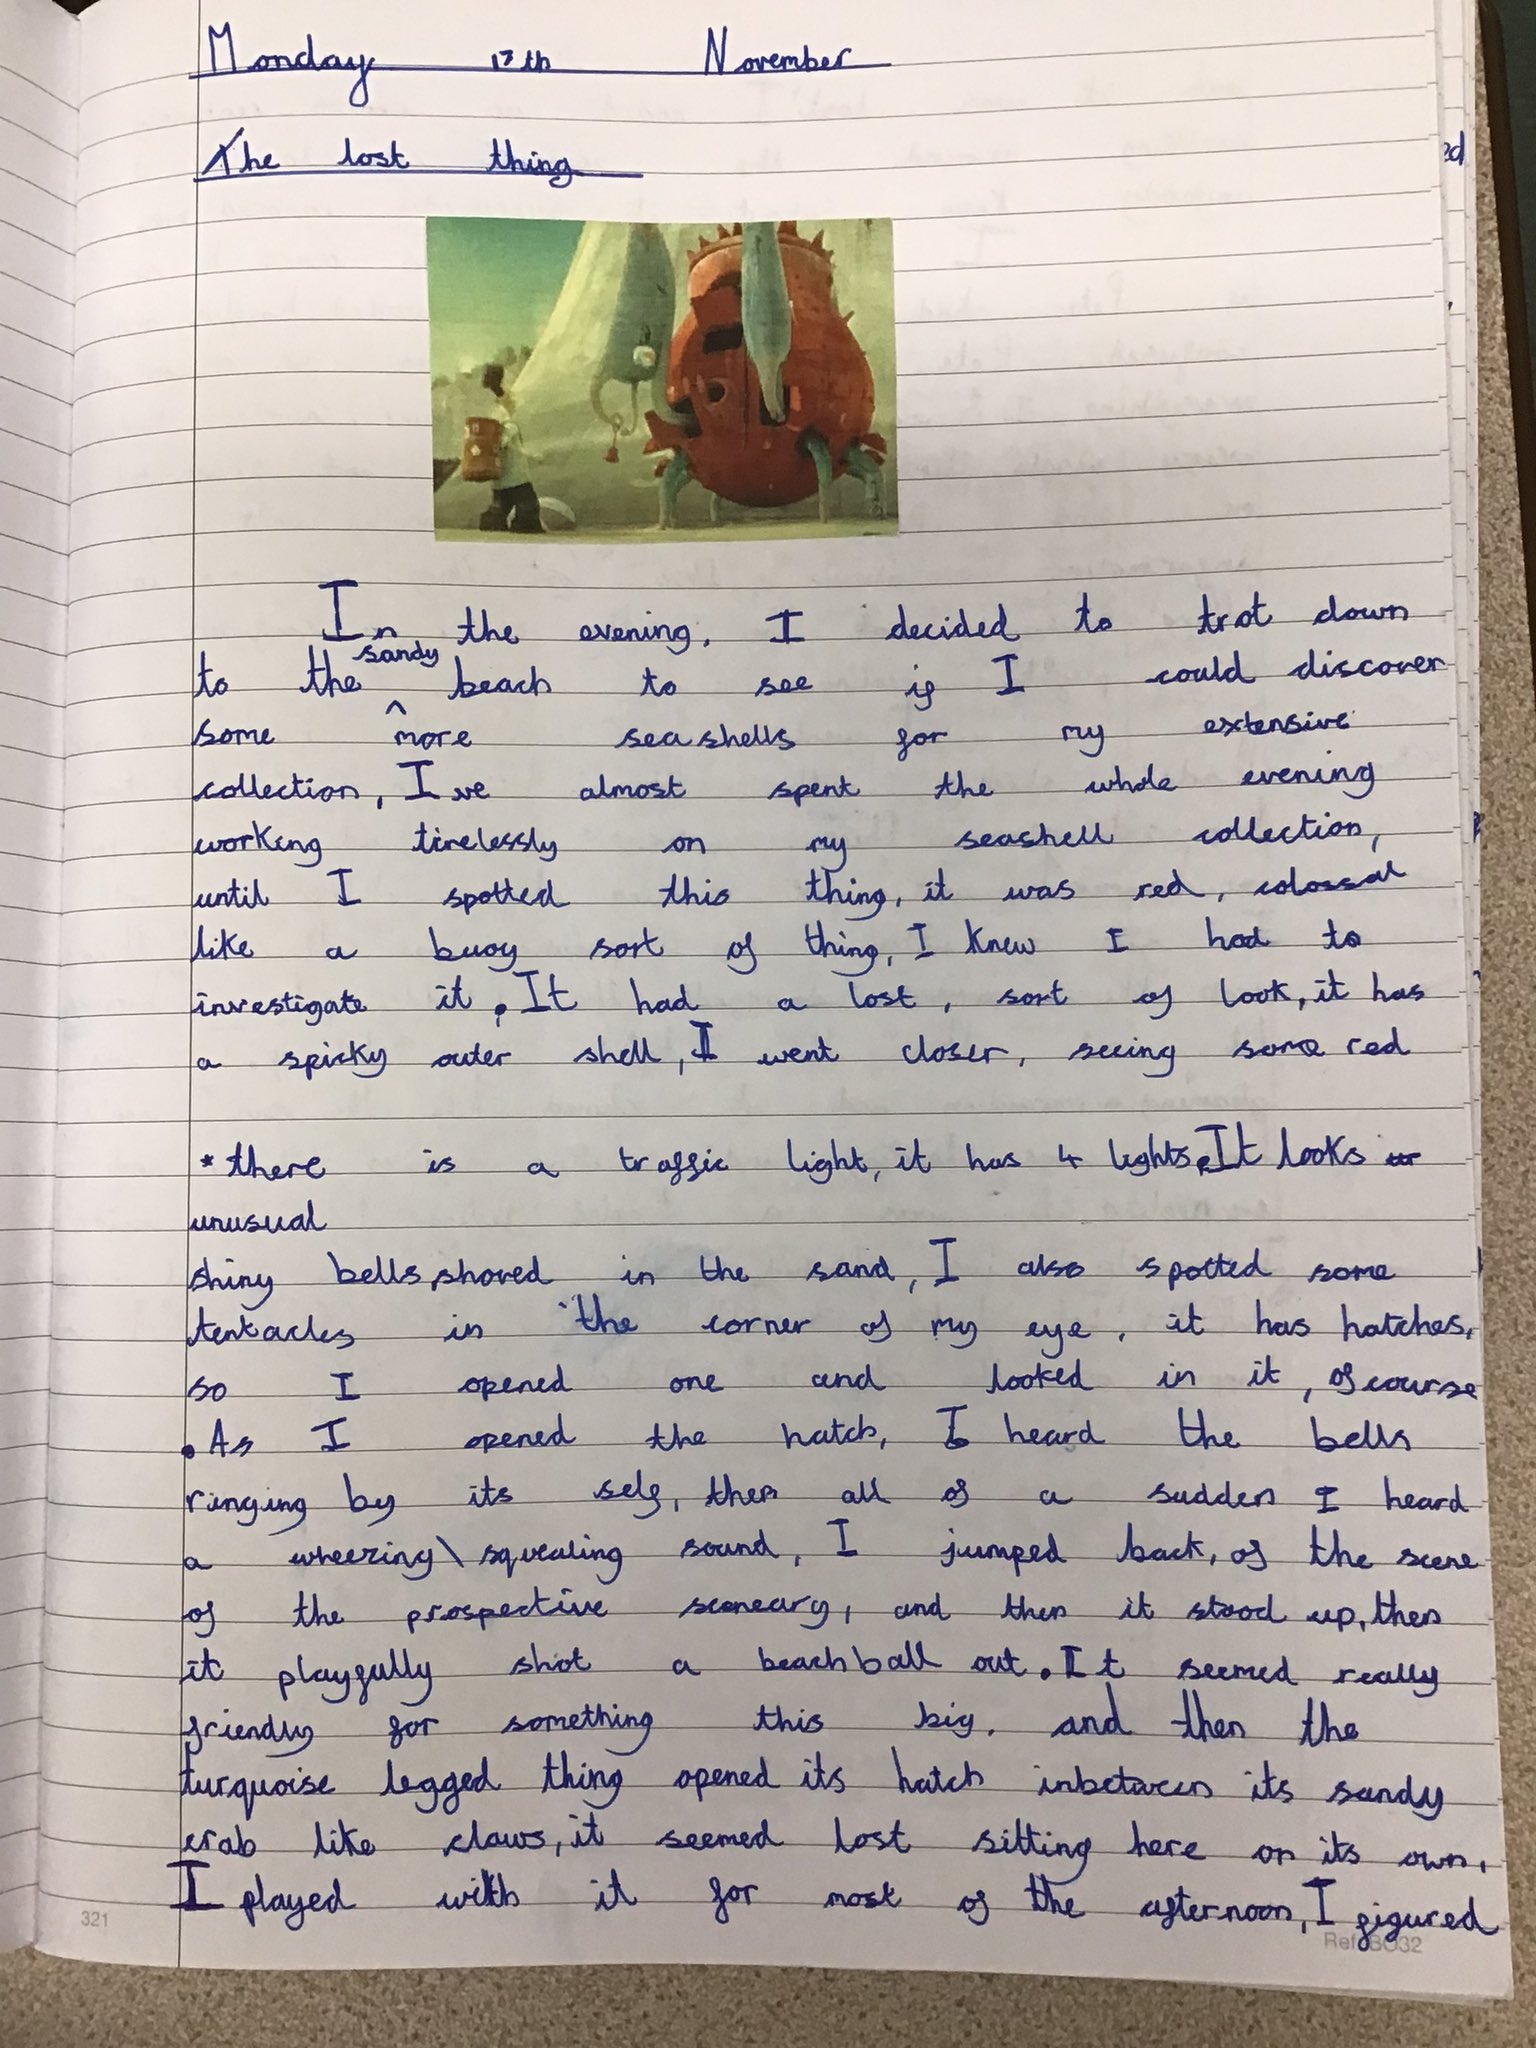 Monday 17th November
The lost thing
In the evening, I decided to trot down
to the sandy beach to see if I could discover
some more seashells for my extensive
collection, I've almost spent the whole evening
working tirelessly on my seashell collection,
until I spotted this thing, it was red, colossal
like a buoy sort of thing, I knew I had to
investigate it. It had a lost, sort of look, it has
a spicky outer shell, I went closer, seeing some red
*there is a traffic light, it has 4 lights. It looks
unusual
shiny bells, shoved in the sand, I also spotted some
tentacles in the corner of my eye, it has hatches,
so I opened one and looked in it, of course
. As I opened the hatch, I heard the bells
ringing by its self, then all of a sudden I heard
a wheezing\squealing sound, I jumped back, of the scene
of the prospective sceneary, and then it stood up, then
it playfully shot a beachball out. It seemed really
friendly for something this big, and then the
turquoise legged thing opened its hatch inbetween its sandy
crab like claws, it seemed lost sitting here on its own,
I played with it for most of the afternoon, I figured
321
Ref: BO32
ed